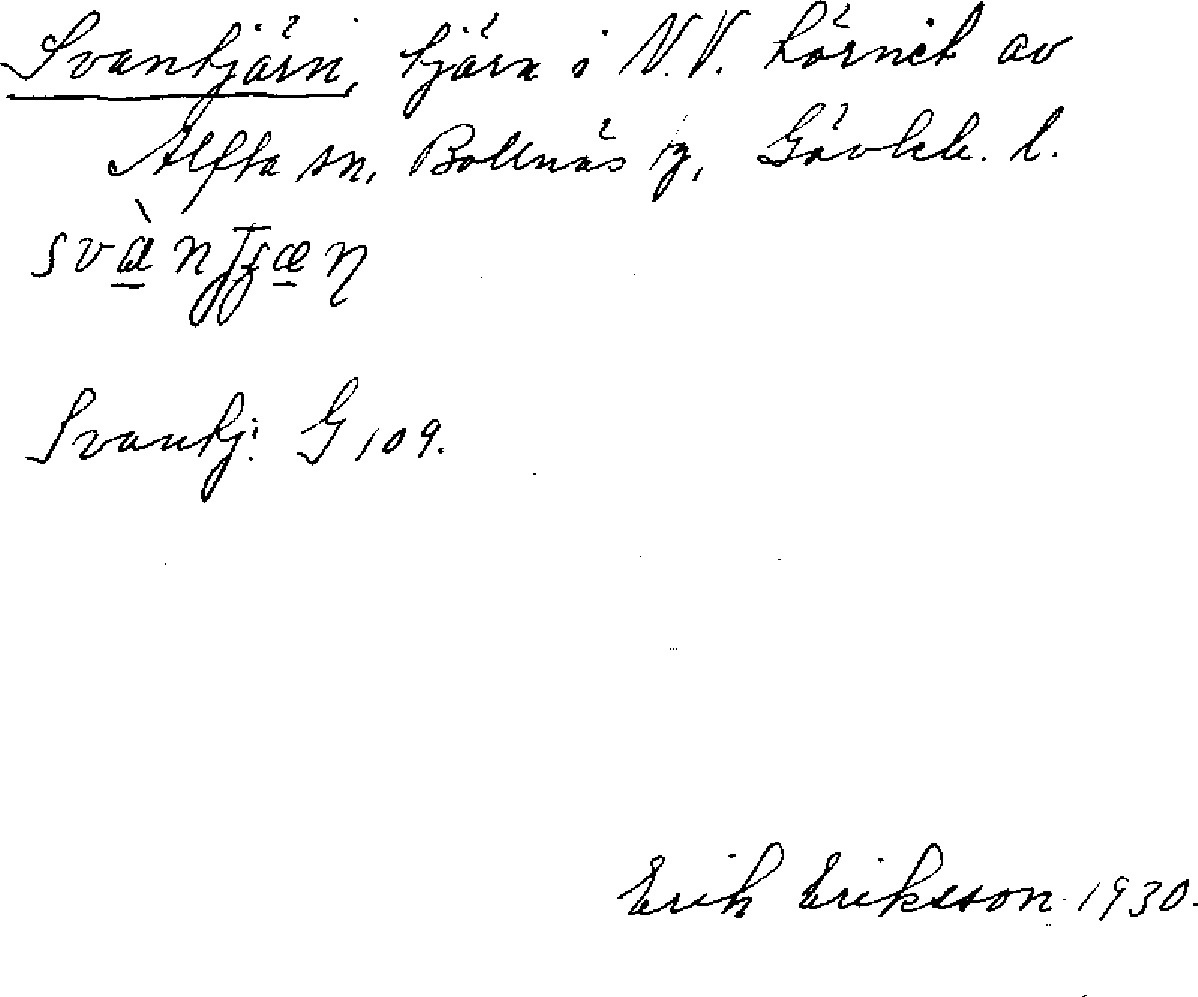 Svantjärn, tjärn i N.V. hörnet av
Alfta sn, Bollnäs tg, Gävleb. l.
Svantj: G 109.
Erik Eriksson 1930.